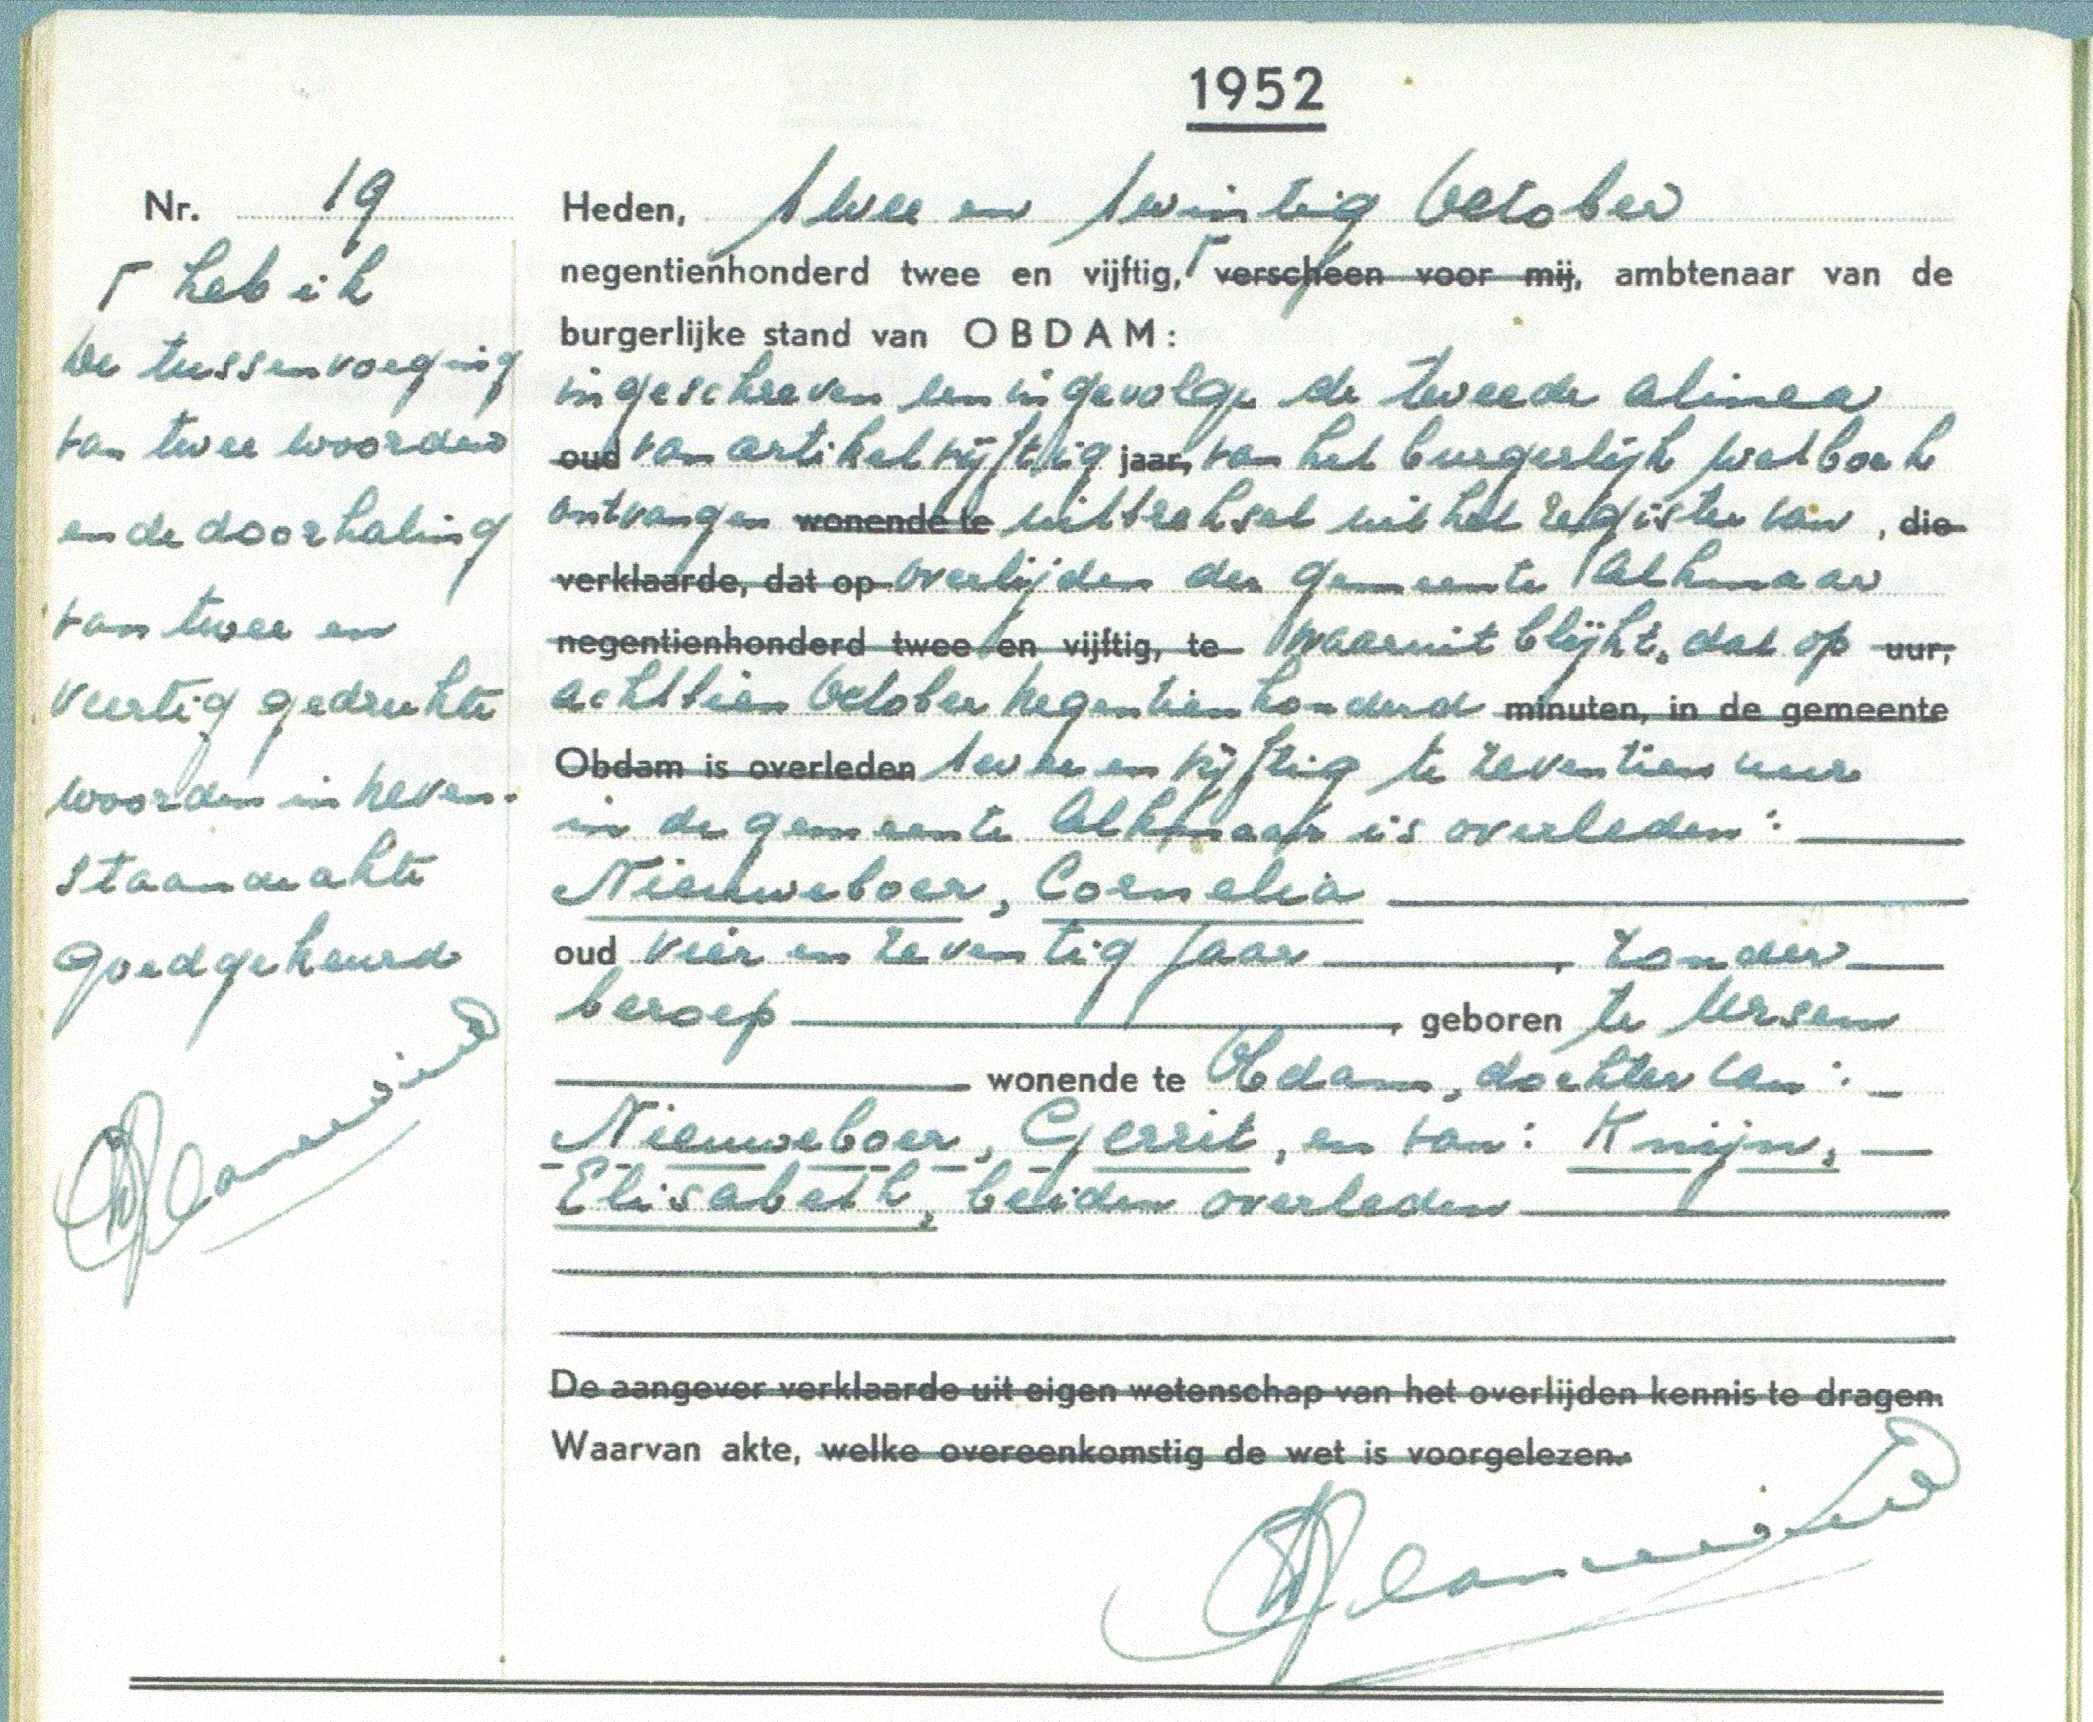 1952
Nr. 19
Heden, twee en twintig October
negentienhonderd twee en vijftig, Γ verscheen voor mij, ambtenaar van de
burgerlijke stand van OBDAM:
ingeschreven een ingevolge de tweede alinea
oud van artikel vijftig jaar, van het burgerlijk wetboek
ontvangen wonende te uittreksel uit het register van , die
verklaarde, dat op overlijden der gemeente Alkmaar
negentienhonderd twee en vijftig, te waaruit blijkt, dat op uur,
achttien October negentienhonderd minuten, in de gemeente
Obdam is overleden twee en vijftig te zeventien uur
in de gemeente Alkmaar is overleden:
Nieuweboer, Cornelia
oud vier en zeventig jaar , zonder
beroep , geboren te Ursem
wonende te Obdam, dochter van:
Nieuweboer, Gerrit, en van: Knijn,
Elisabeth, beiden overleden
De aangever verklaarde uit eigen wetenschap van het overlijden kennis te dragen.
Waarvan akte, welke overeenkomstig de wet is voorgelezen.
Γ heb ik
De tussenvoeging
van twee woorden
en de doorhaling
van twee en
veertig gedrukte
woorden in neven-
staande akte
goedgekeurd